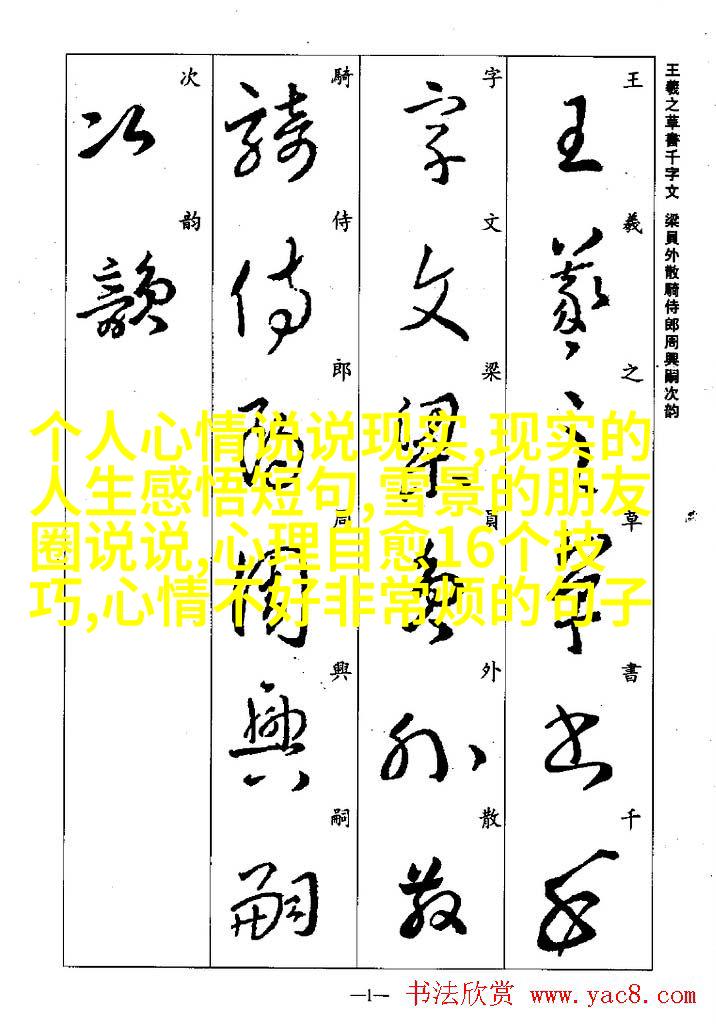 王羲之草書千字文 梁員外散騎侍郎周興嗣次韵
王羲之草書千
字文梁員外散
騎侍郎周興嗣
次韵
个人心情说说现实,现实的
人生感悟短句,雪景的朋友
圈说说,心理自愈16个技
巧,心情不好非常烦的句子
—1—
书法欣赏 www.yac8.com